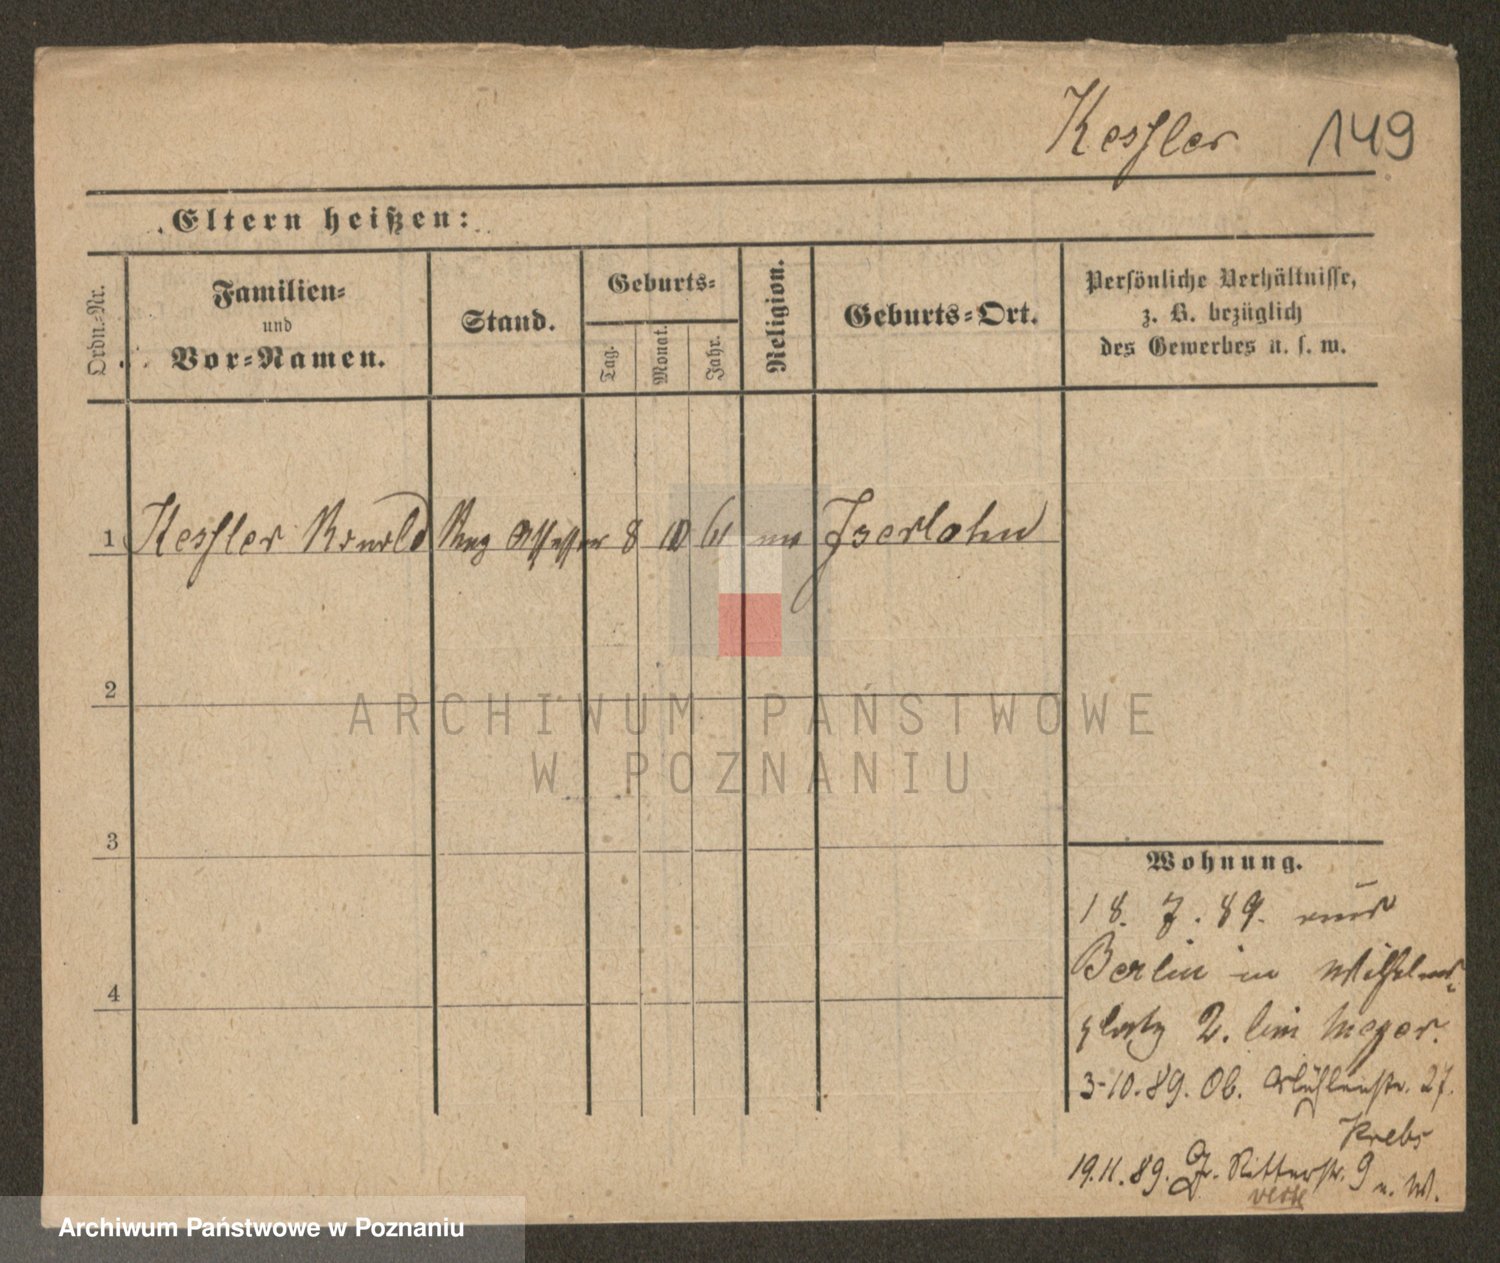 Kessler 149
Eltern heißen:
Ordn.-Nr.
Familien-
und
Vor-Namen.
Stand.
Geburts-
Tag.
Monat.
Jahr.
Religion.
Geburts-Ort.
Persönliche Verhältnisse,
z. B. bezüglich
des Gewerbes u. s. w.
1 Kessler Arnold Reg Assessor 8 10 61 Iserlohn
2
ARCHIWUM PAŃSTWOWE
W POZNANIU
3
4
Wohnung.
18. 7. 89. aus
Berlin in Wilhelms-
platz 2. bei Meyer.
3-10.89. Ob. Mühlenstr. 27.
Krebs
19.11.89. Gr. Ritterstr. 9 u. W.
Archiwum Państwowe w Poznaniu